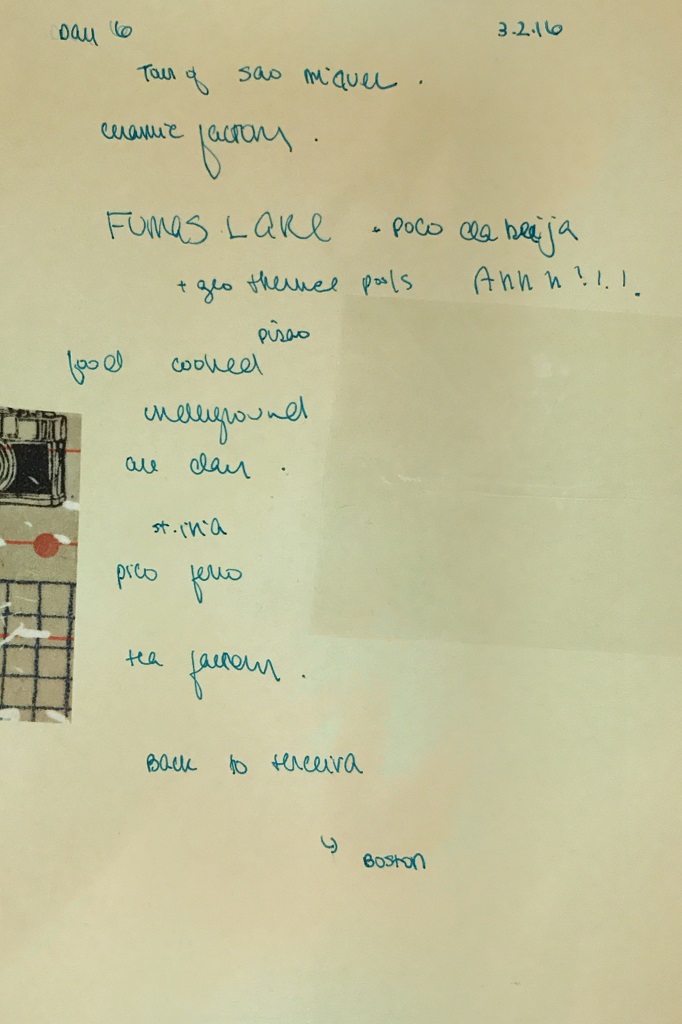 Day 6 3.2.16
Tour of sao miguel .
ceramic factory .
FURNAS LAKE + poco da beija
+ geo thermal pools Ahh h !.!.!.
pisao
food cooked
underground
all day .
st. iria
pico ferro
tea factory .
Back to terceira
↳ Boston